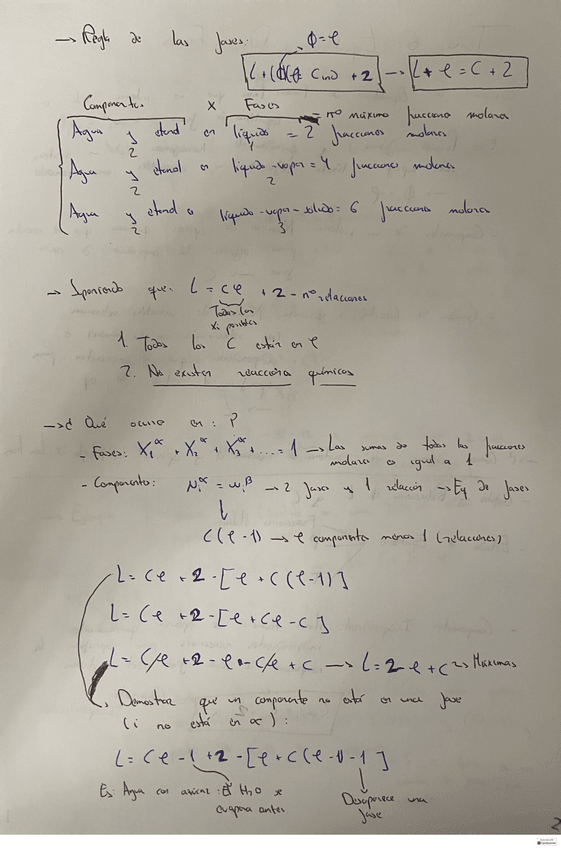 → Regla de las fases: φ=ℓ
L+ℓ = C + 2
Componentes x Fases → nº máximo fracciones molares
Agua y etanol en líquido = 2 fracciones molares
2 1
Agua y etanol en líquido-vapor = 4 fracciones molares
2 2
Agua y etanol en líquido-vapor-sólido = 6 fracciones molares
2 3
→ Suponiendo que: L = Cℓ + 2 - nº relaciones
Todas las
xi posibles
1. Todos los C están en ℓ
2. No existen reacciones químicas
→ ¿Qué ocurre en: ?
- Fases: X₁^α + X₂^α + X₃^α + ... = 1 → Las sumas de todas las fracciones
molares es igual a 1
- Componente: μᵢ^α = μᵢ^β → 2 fases y 1 relación → Eq de fases
↓
C(ℓ-1) → ℓ componentes menos 1 (relaciones)
L = Cℓ + 2 - [ℓ + C(ℓ-1)]
L = Cℓ + 2 - [ℓ + Cℓ - C]
L = Cℓ + 2 - ℓ - Cℓ + C → L = 2 - ℓ + C → Máximas
Demostrar que un componente no está en una fase
(i no está en α):
L = Cℓ - 1 + 2 - [ℓ + C(ℓ-1) - 1]
Ej: Agua con azúcar: El H₂O se
evapora antes
Desaparece una
fase
2